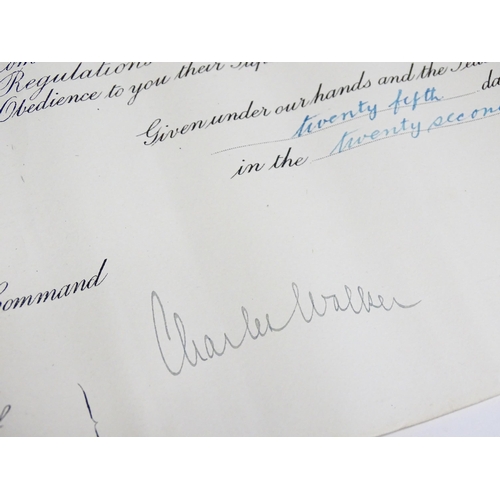 Regulations
Obedience to you their
Given under our hands and the
twenty fifth
in the twenty second
Command
Charles Walker